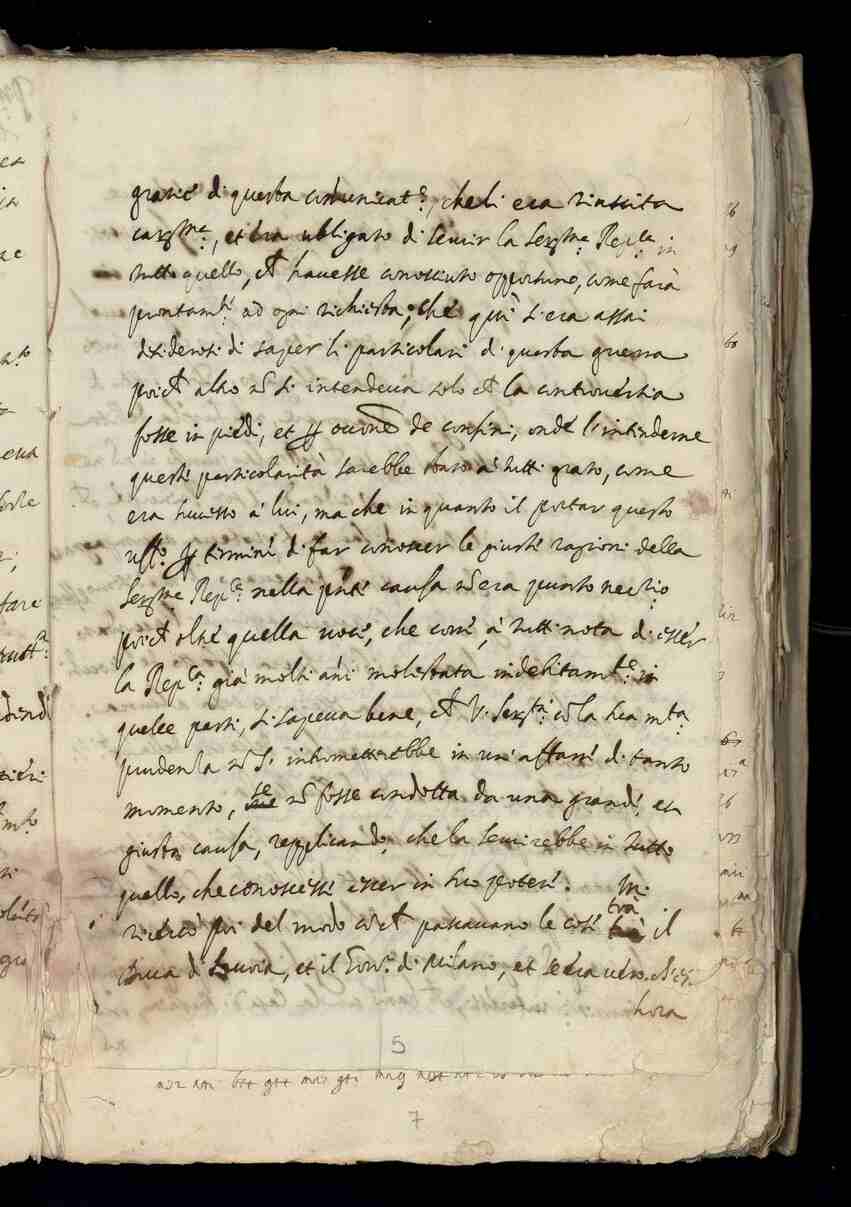 gratie di questa co͠municat.e, che li era riuscita
cariss.ma, et era ubligato di servir la Seren.ma Rep.ca in
tutto quello, ch' havesse conosciuto opportuno, come farà
prontam.te ad ogni richiesta; che qui si era assai
desiderosi di saper li particolari di questa guerra
poich' altro no͠ si intendeva solo ch' la controversia
fosse in piedi, et p de confini, onde l'intenderne
questi particolarità sarebbe stato à tutti grato, come
era successo à lui, ma che in quanto il portar questo
uff.o p termine di far conoscer le giuste ragioni della
Seren.ma Rep.ca nella p͠nte causa no͠ era punto nec.rio
poich' oltre quella voce, che corre, à tutti nota di esser
la Rep.ca già molti an͠i molestata indebitam.te in
quelle parti, si sapeva bene, ch' V. Ser.tà co͠ la sua m.ta
prudenza no͠ s' intrometterebbe in un' affare di tanto
momento, se no͠ fosse condotta da una grande, et
giusta causa, replicando, che la servirebbe in tutto
quello, che conoscesse esser in suo potere. Mi
ricercò poi del modo co͠ ch' passavano le cose trà il
Duca di Savoia, et il Gov.r di Milano, et se era vero, ch'
hora
5
7